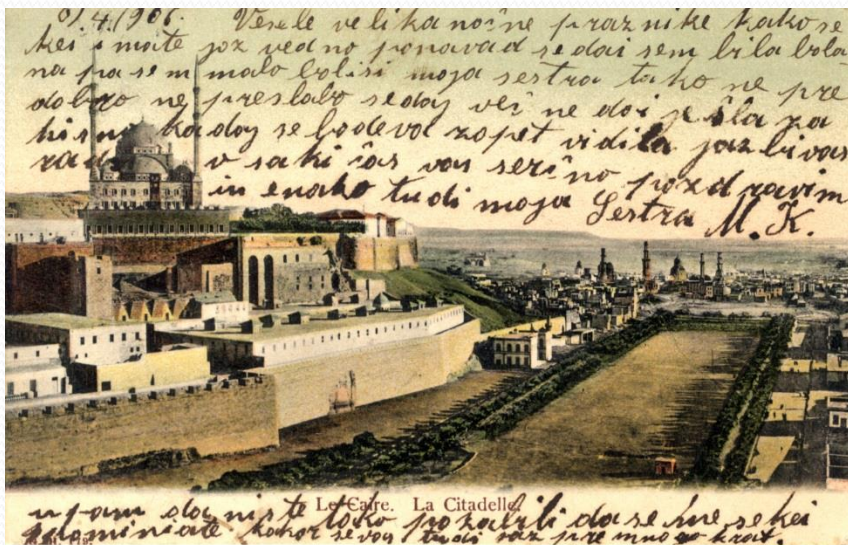 9/4/906. Vesele velikanočne praznike kako se
kei imate joz vedno ponavad sedai sem bila bola
na pa sem malo bolisi moja sestra tako ne pre
dobro ne preslabo sedaj več ne doi pšla za
kadaj se bodeva zopet vidila jaz bi vas
rada v saki čas vas serčno pozdravim
in enako tudi moja Sestra M. K.
Le Caire. La Citadelle.
upam da niste tako pozabili da se me se kei
spominiate. kakor se vas tudi jaz pre mnogo krat.